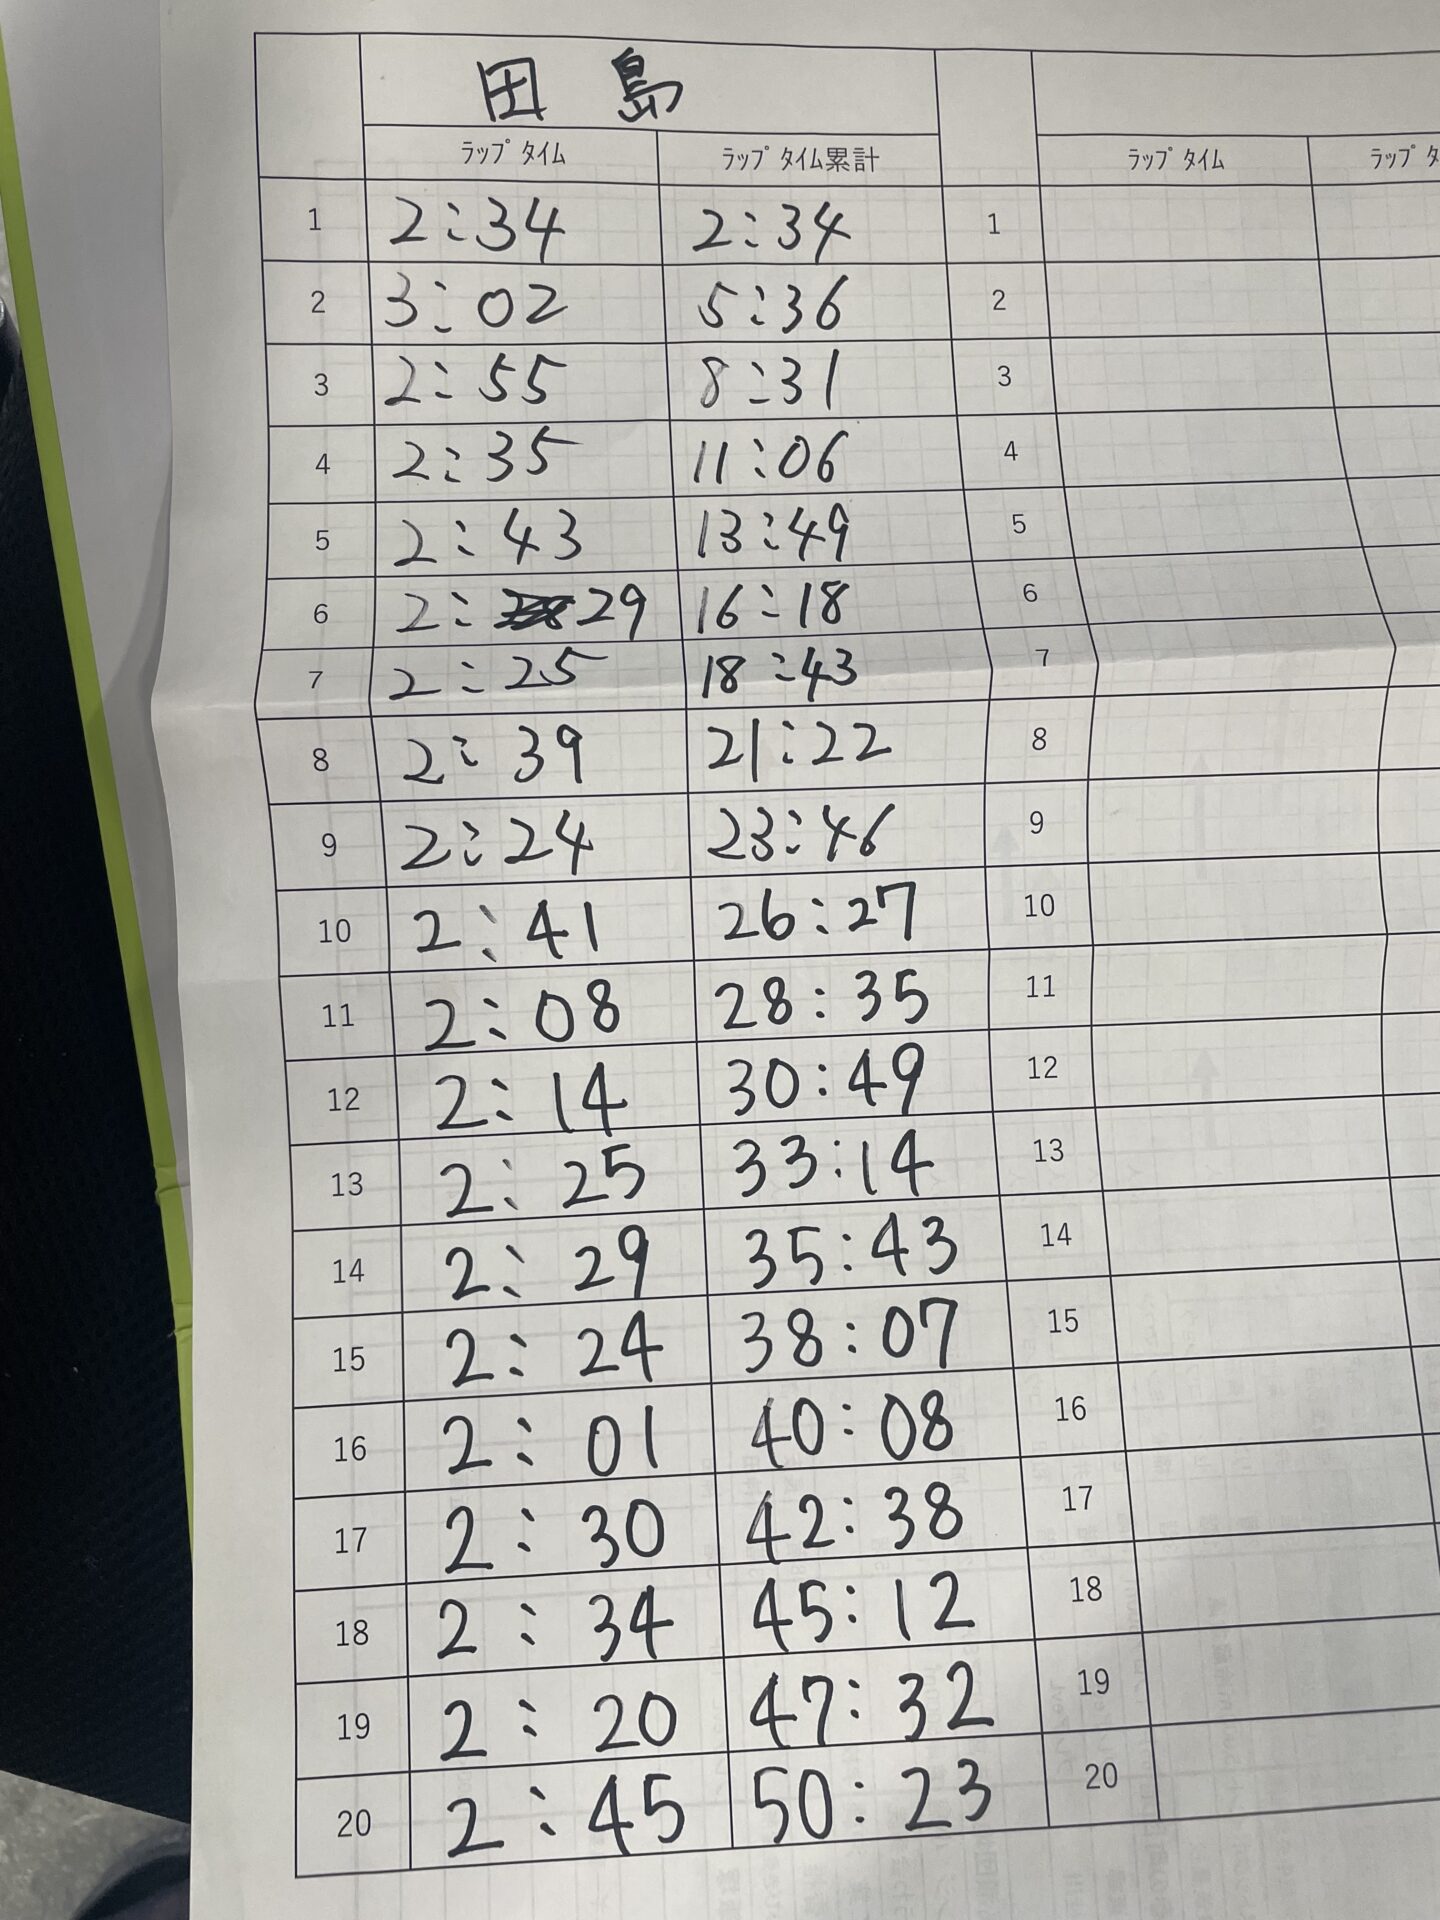 田島
ラップタイム ラップタイム累計 ラップタイム ラップタ
1 2:34 2:34 1
2 3:02 5:36 2
3 2:55 8:31 3
4 2:35 11:06 4
5 2:43 13:49 5
6 2:29 16:18 6
7 2:25 18:43 7
8 2:39 21:22 8
9 2:24 23:46 9
10 2:41 26:27 10
11 2:08 28:35 11
12 2:14 30:49 12
13 2:25 33:14 13
14 2:29 35:43 14
15 2:24 38:07 15
16 2:01 40:08 16
17 2:30 42:38 17
18 2:34 45:12 18
19 2:20 47:32 19
20 2:45 50:23 20